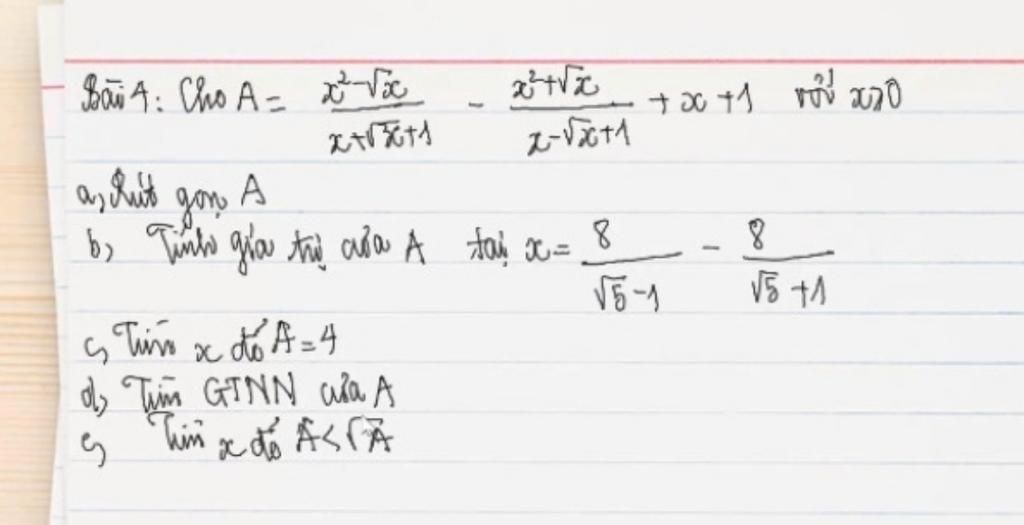 Bài 4: Cho A = (x² - √x)/(x + √x + 1) - (x² + √x)/(x - √x + 1) + x + 1 với x ≥ 0
a, Rút gọn A
b, Tính giá trị của A tại x = 8/(√5 - 1) - 8/(√5 + 1)
c, Tìm x để A = 4
d, Tìm GTNN của A
e, Tìm x để A < √A